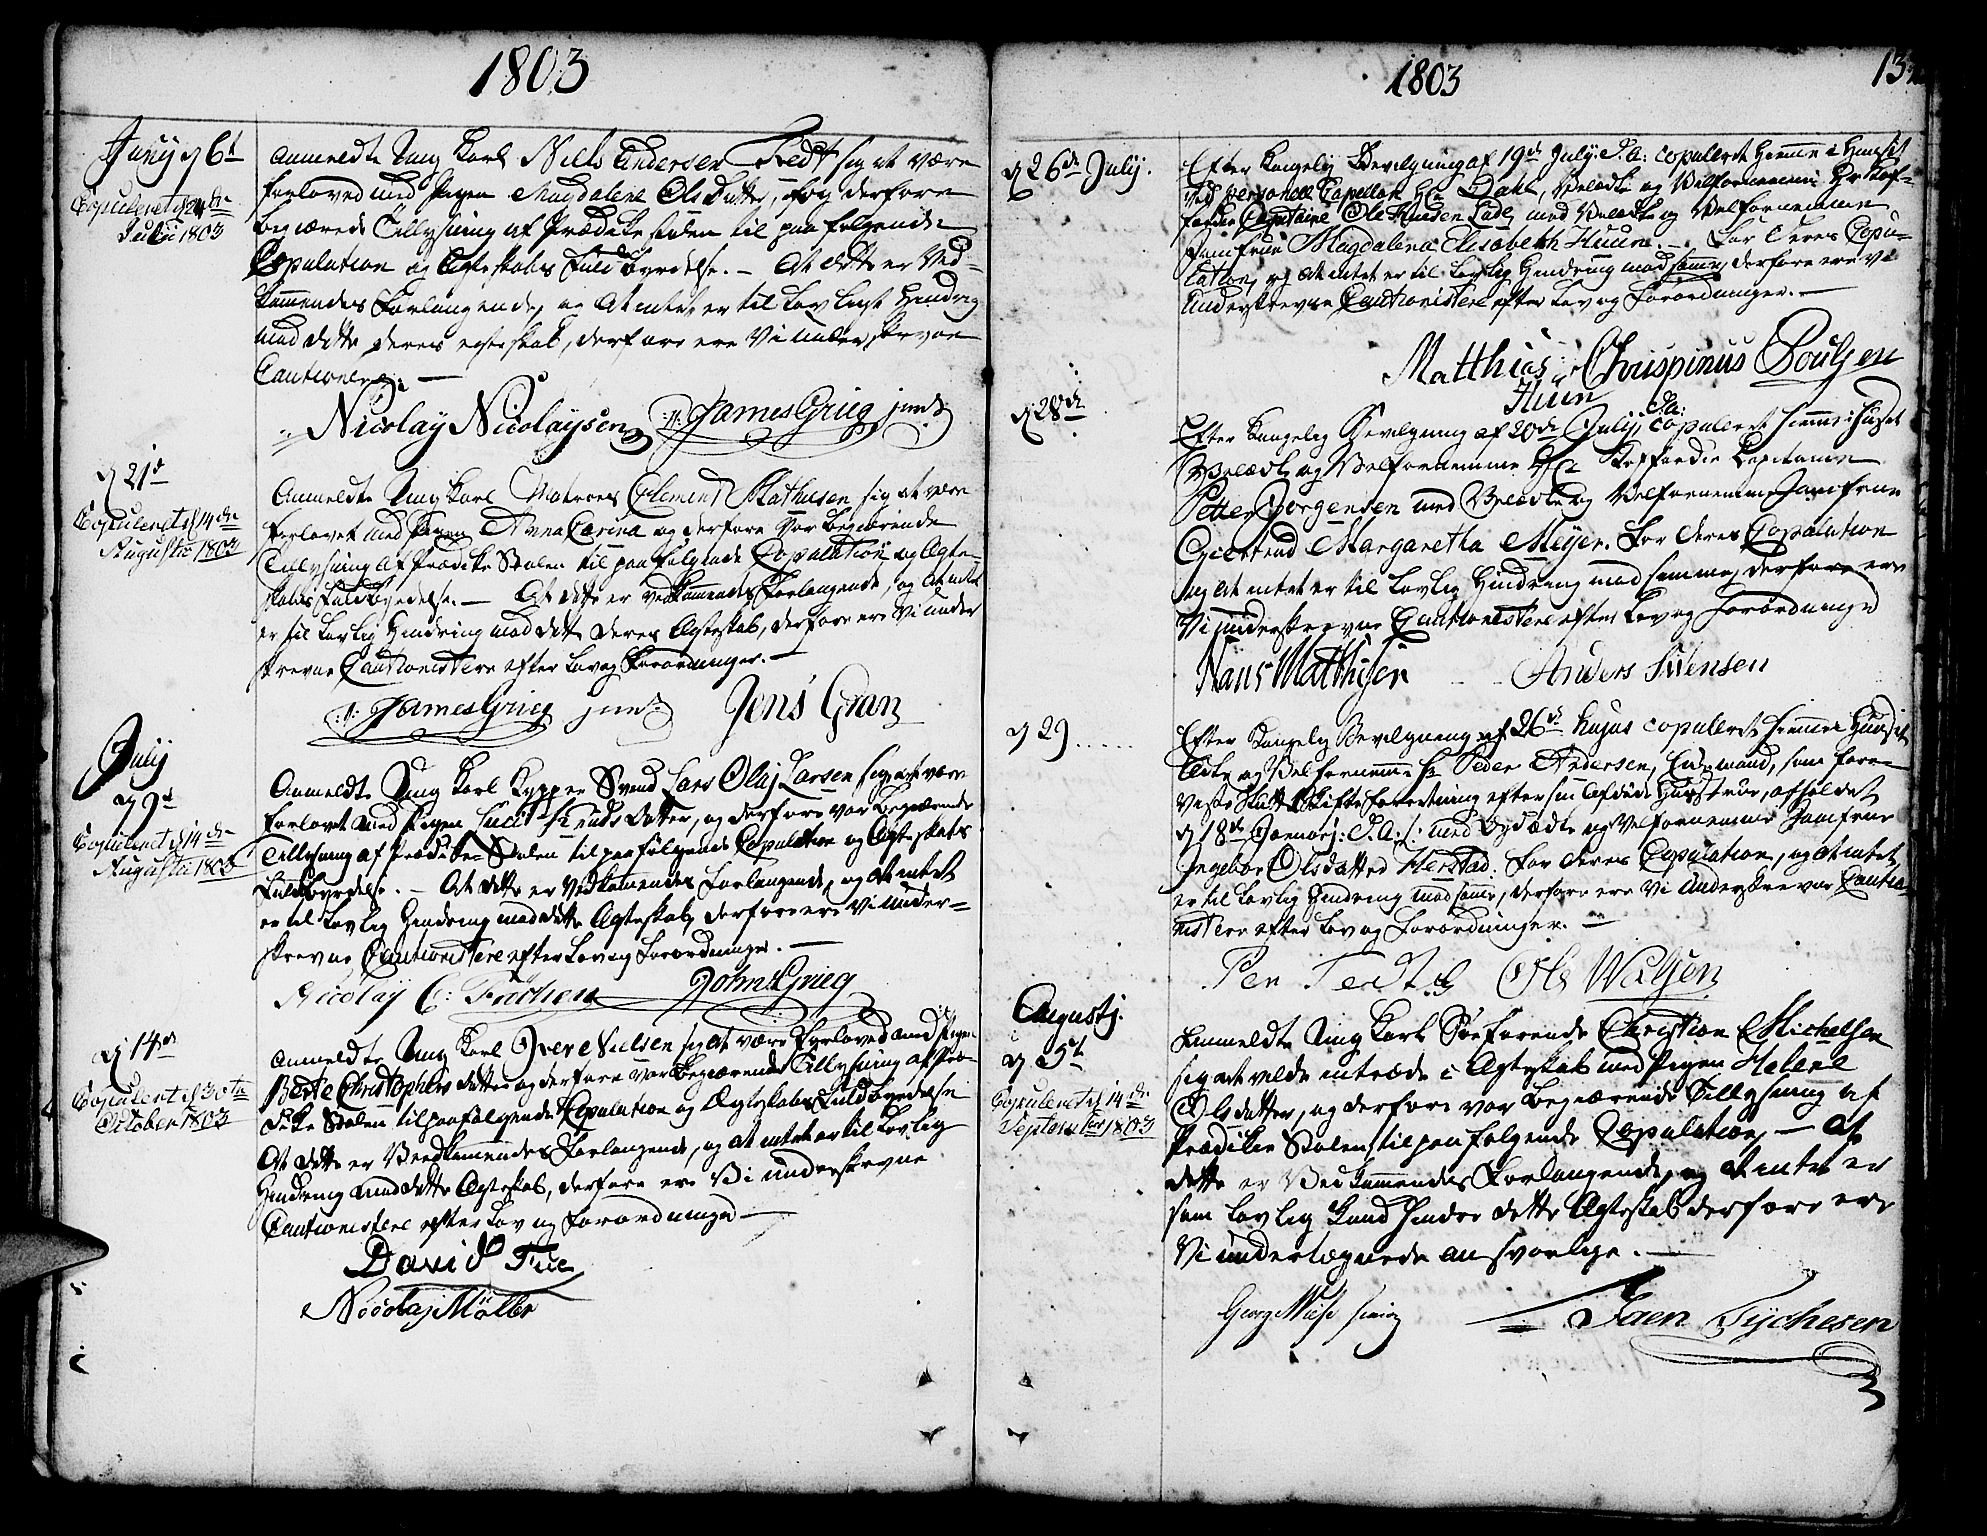 1803
Junÿ d 6t
Copuleret d 24de
Julii 1803
Anmeldte Ung Karl Niels Andersen Tredt sig at være
forloved med Pigen Magdalene Ols Datter, og derfore
begjærede Tillysning af Prædikestolen til paafølgende
Copulation og Ægteskabs Fuldbyrdelse. – At dette er Ved-
kommendes Forlangende, og At intet er til Lovligt Hindring
mod dette deres egteskab, derfore ere Vi underskrevne
Cautionere. –
Nicolaÿ Nicolaÿsen James Grieg junr
d 21d
Copuleret d 14de
Augustii 1803
Anmeldte Ung Karl Matroes Clement Mathiesen sig at være
forlovet med Pigen Anna Carina og derfore var begjærende
Tillysning af Prædike Stolen til paafølgende Copulation og Ægte-
skabs Fuldbyrdelse. – At dette er vedkommendes Forlangende, og At intet
er til Lovlig Hindring mod dette deres Ægteskab, derfore ere Vi under
skrevne Cautionistere efter Lov og Forordninger. –
James Grieg junr Jens Gran
Julÿ
d 9d
Copuleret d 14de
Augustii 1803
Anmeldte Ung Karl Kypper Svend Lars Olaj Larsen sig at være
forlovet med Pigen Knuds Datter, og derfore var begjærende
Tillysning af Prædike-Stolen til paafølgende Copulation og Ægteskabs
Fuldbyrdelse. – At dette er vedkommendes Forlangende, og At intet
er til Lovlig Hindring mod dette Ægteskab, derfore ere Vi under-
skrevne Cautionistere efter Lov og Forordninger. –
Nicolaÿ C: Frichen John Grieg
d 14de
Copuleret d 30te
October 1803
Anmeldte Ung Karl Iver Nielsen sig at være Forloved med Pigen
Berte Christophers datter og derfore var begjærende Tillysning af Præ-
dike Stolen til paafølgende Copulation og Ægteskabs Fuldbyrdelse
At dette er Vedkommendes Forlangende, og at intet er til Lovlig
Hindring mod dette Ægteskab, derfore ere Vi underskrevne
Cautionistere efter Lov og Forordninger –
David Frie
Nicolaj Möller
1803
13
d 26de Julÿ.
Efter Kongelig Bevilgning af 19de Julÿ d. a: copuleret hiemme i Huuset
ved personel Capellan Hr Dahl, Velædle og Velfornemme Hr Kof-
fardie Capitaine Ole Lade, med Velædle og Velfornemme
Jomfrue Magdalena Elisabeth Huun. – For deres Copu-
lation, og At intet er til Lovlig Hindring mod samme, derfore ere Vi
Underskrevne Cautionistere efter Lov og Forordninger. –
Matthias Chrispinus Poulsen
Huun
d 28de
Efter Kongelig Bevilgning af 20de Julÿ, d. a: copuleret hiemme i Huset
Velædle og Velfornemme Hr Koffardie Capitaine
Petter Jörgensen med Velædle og Velfornemme Jomfrue
Giertrud Margaretha Meÿer. For deres Copulation
og At intet er til Lovlig Hindring mod samme, derfore ere
Vi underskrevne Cautionistere efter Lov og Forordninger
Hans Matthisen Anders Svensen
d 29 .....
Efter Kongelig Bevilgning af 26de hujus copuleret hiemme i Huuset
Ædle og Velfornemme Hr Peder Andersen, Enkemand, som fore-
viste Skifte Forretning efter sin Afdøde Hustrue, afholdet
d 18de Januarj: d. a: med Dydædle og Velfornemme Jomfrue
Ingebor Olsdatter Herstad. For deres Copulation, og At intet
er til Lovlig Hindring mod samme, derfore ere Vi Underskrevne Cautio-
nistere efter Lov og Forordninger. –
Per Tredt Ols Walsen
Augustj.
d 25t
Copuleret d 14de
September 1803
Anmeldte Ung Karl Søefarende Christian Michelsen
sig at vilde intræde i Ægteskab med Pigen Helene
Olsdatter, og derfore var begjærende Tillysning af
Prædike Stolen til paafølgende Copulation, – At
dette er Vedkommendes Forlangende, og At intet er
som Lovlig kand hindre dette Ægteskab derfore ere
Vi undertegnede ansvarlige. –
Georg Wiese Jaen Tÿchesen